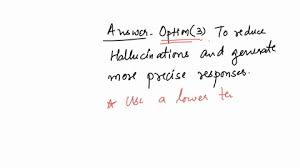 Answer- Option(3) To reduce
Hallucinations and generate
more precise responses.
* Use a lower te